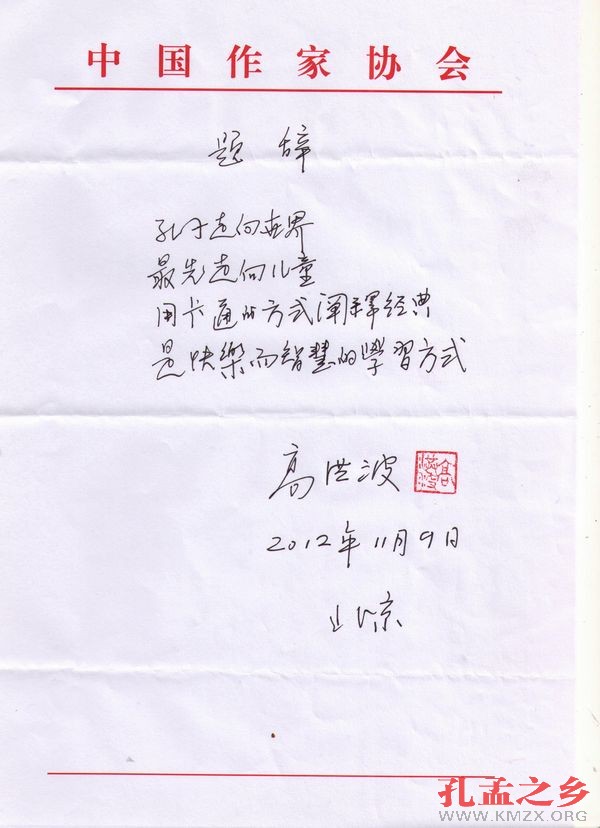 中国作家协会
题辞
孔子走向世界
最先走向儿童
用卡通的方式阐释经典
是快樂而智慧的學習方式
高洪波
高洪波
2012年11月9日
北京
孔孟之乡
WWW.KMZX.ORG